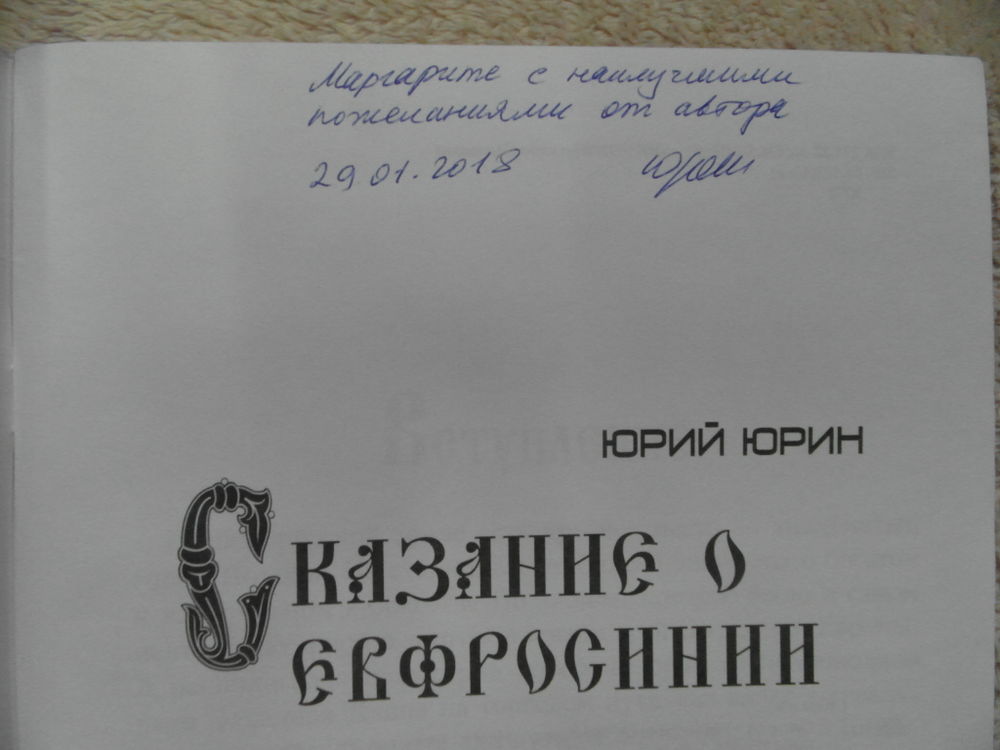 Маргарите с наилучшими
пожеланиями от автора
29 01.2018
ЮРИЙ ЮРИН
СКАЗАНИЕ О
ЕВФРОСИНИИ